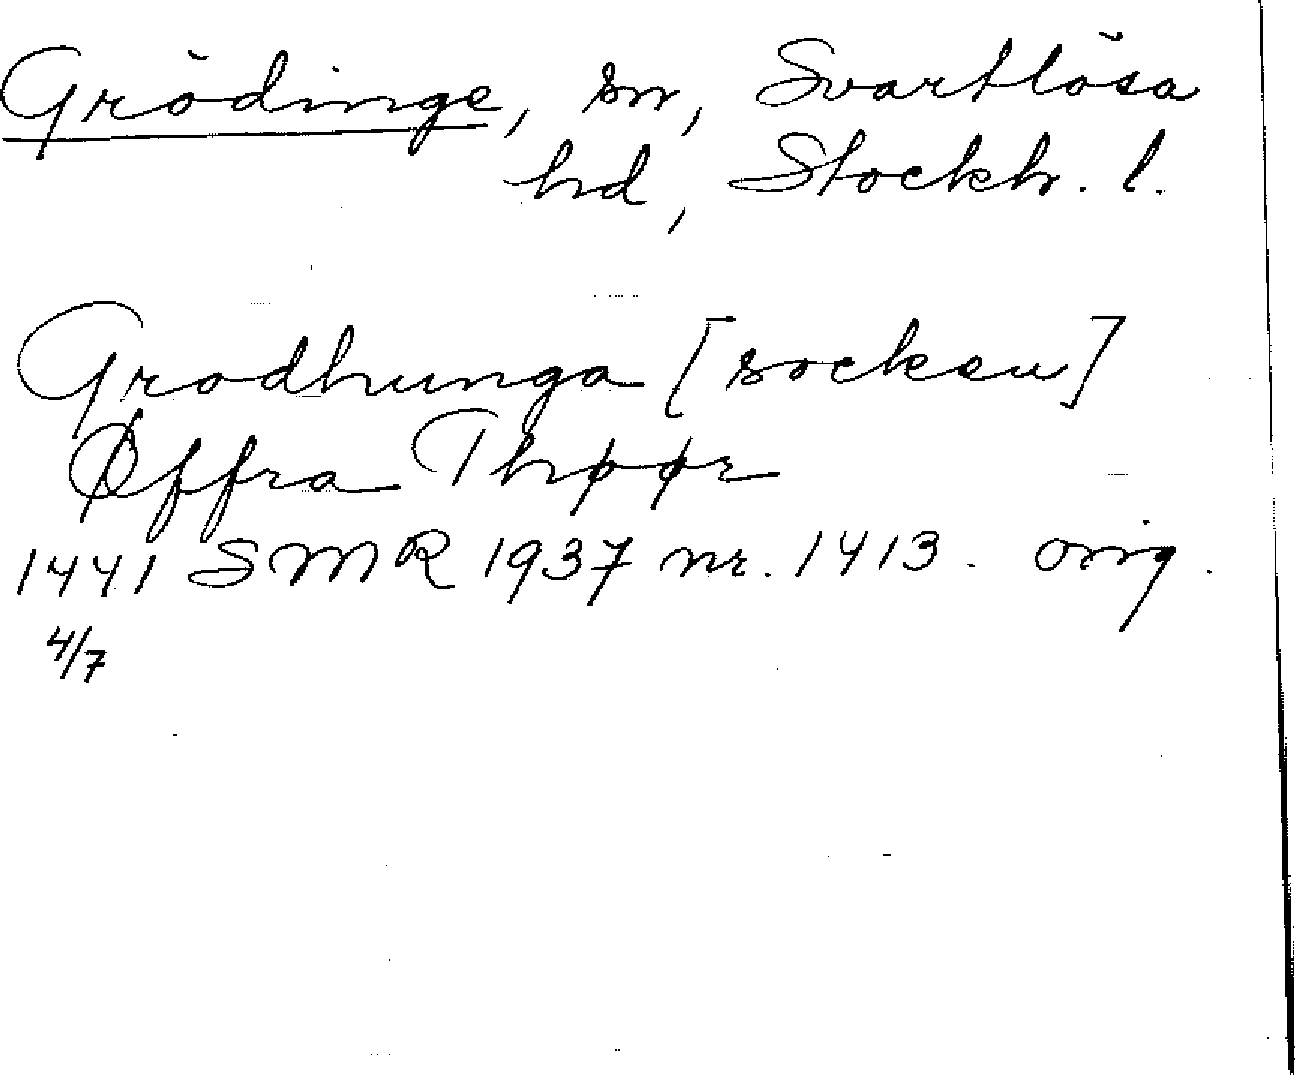 Grödinge, sn, Svartlösa
hd, Stockh. l.
Grodhunga [socken]
Øffra Thøør
1441 SMR 1937 nr. 1413. orig.
4/7